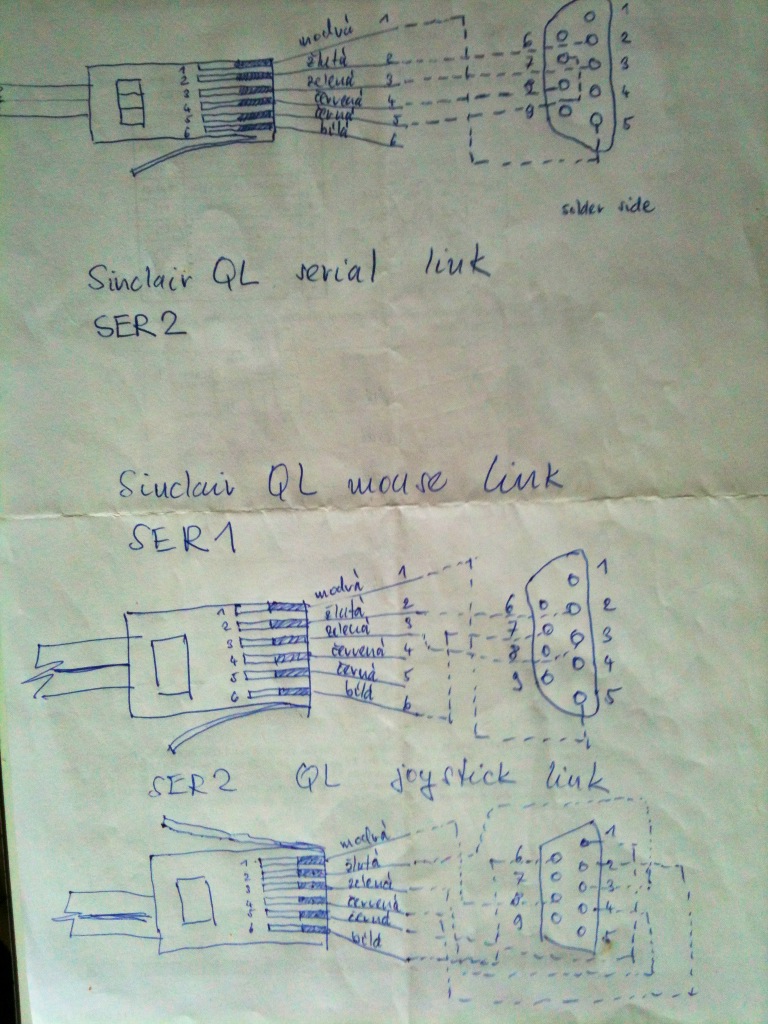 modrá 1
žlutá 2
zelená 3
červená 4
černá 5
bílá 6
1
2
3
4
5
6
6
7
8
9
1
2
3
4
5
solder side
Sinclair QL serial link
SER2
Sinclair QL mouse link
SER1
modrá 1
žlutá 2
zelená 3
červená 4
černá 5
bílá 6
1
2
3
4
5
6
6
7
8
9
1
2
3
4
5
SER2 QL joystick link
modrá
žlutá
zelená
červená
černá
bílá
1
2
3
4
5
6
6
7
8
9
1
2
3
4
5